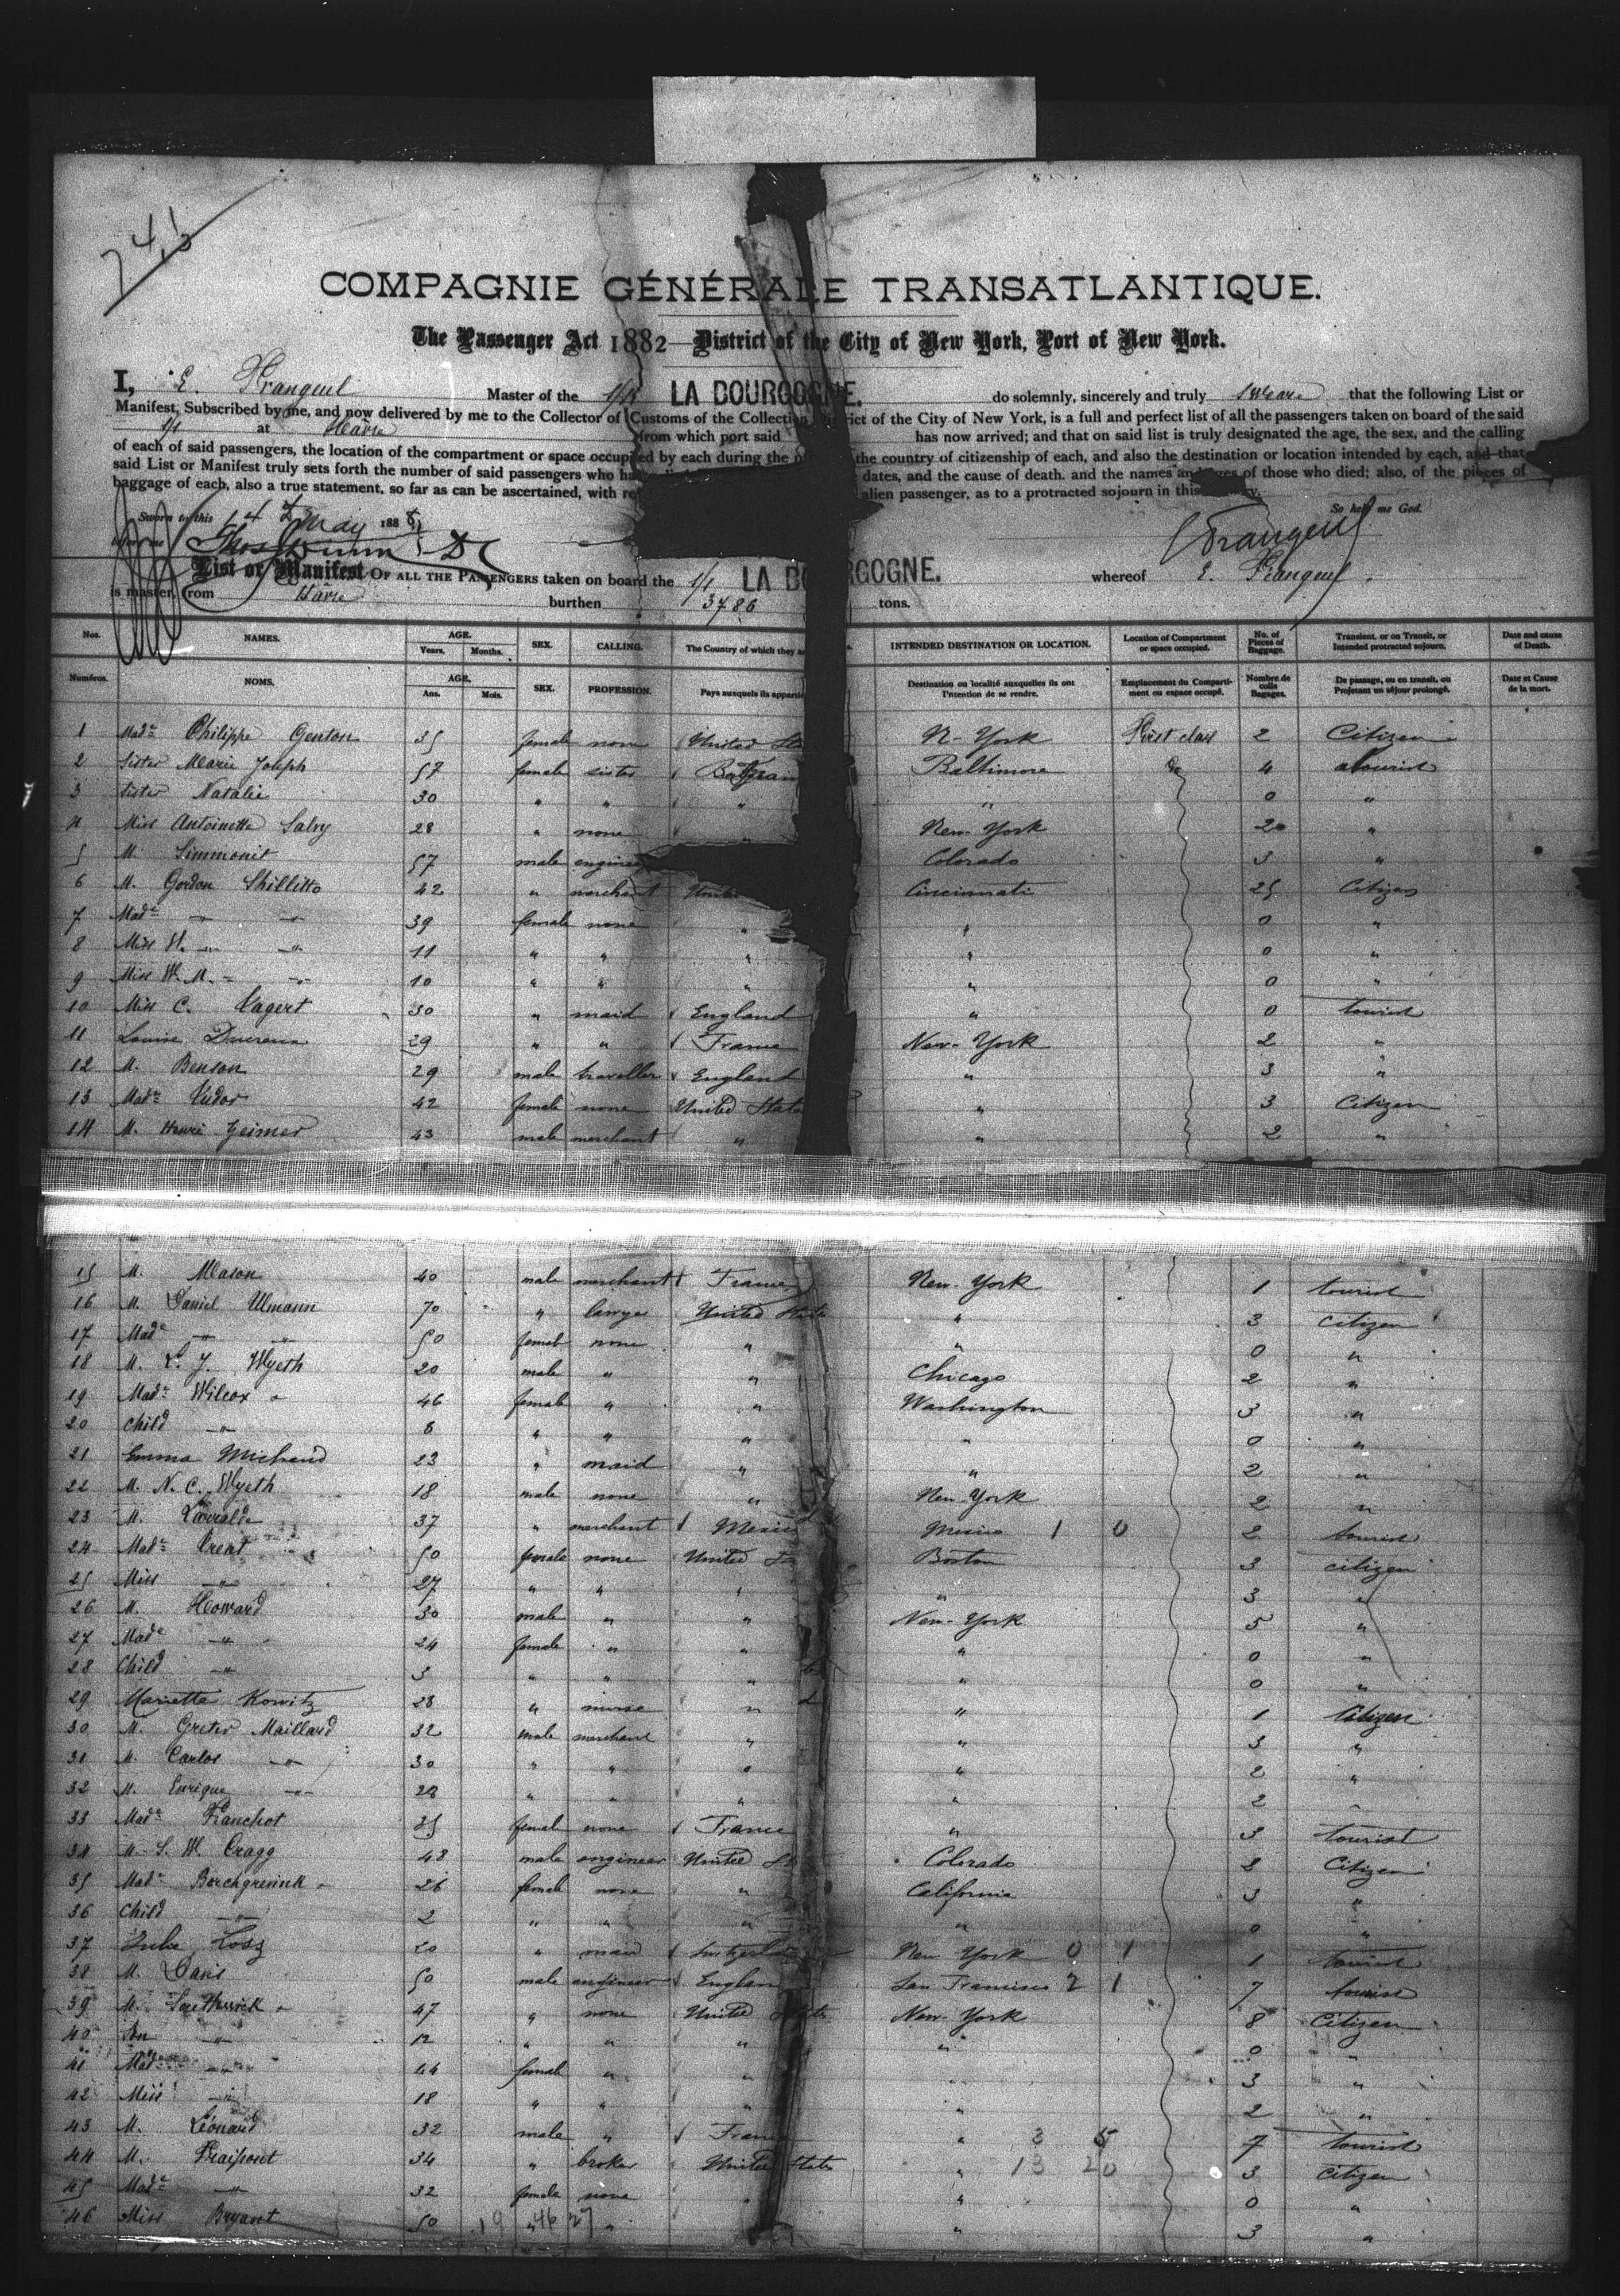 COMPAGNIE GÉNÉRALE TRANSATLANTIQUE.
The Passenger Act 1882 District of the City of New York, Port of New York.
I, E. Frangeul Master of the LA BOURGOGNE. do solemnly, sincerely and truly swear that the following List or
Manifest, Subscribed by me, and now delivered by me to the Collector of Customs of the Collection District of the City of New York, is a full and perfect list of all the passengers taken on board of the said
at Havre from which port said has now arrived; and that on said list is truly designated the age, the sex, and the calling
of each of said passengers, the location of the compartment or space occupied by each during the the country of citizenship of each, and also the destination or location intended by each, and that
said List or Manifest truly sets forth the number of said passengers who dates, and the cause of death. and the names and ages of those who died; also, of the pieces of
baggage of each, also a true statement, so far as can be ascertained, with alien passenger, as to a protracted sojourn in this
So help me God.
Sworn to this 14 May 188
before me
E. Frangeul
List or Manifest OF ALL THE PASSENGERS taken on board the LA BOURGOGNE. whereof E. Frangeul
is master, from Havre burthen 3786 tons.
Nos. NAMES. AGE. Years. Months. SEX. CALLING. The Country of which they INTENDED DESTINATION OR LOCATION. Location of Compartment or space occupied. No. of Pieces of Baggage. Transient, or on Transit, or Intended protracted sojourn. Date and cause of Death.
Numéros. NOMS. AGE. Ans. Mois. SEX. PROFESSION. Pays auxquels ils Destination ou localité auxquelles ils ont l'intention de se rendre. Emplacement du Compartiment ou espace occupé. Nombre de colis Bagages. De passage, ou en transit, ou Projetant un séjour prolongé. Date et Cause de la mort.
1 Made Philippe Genton 35 female none United N-York First class 2 Citizen
2 Sister Marie Joseph 57 female sister Baltimore 4 tourist
3 Sister Natalie 30 " " " " 0 "
4 Miss Antoinette Salvy 28 " none " New-York 20 "
5 M. Simmonit 57 male Colorado 3 "
6 M. Gordon Shillitto 42 " merchant Cincinnati 25 Citizen
7 Made " " 39 female none " " 0 "
8 Miss H. " " 11 " " " " 0 "
9 Miss W. M. " " 10 " " " " 0 "
10 Miss C. 30 " maid England " 0 tourist
11 Louise 29 " " France New-York 2 "
12 M. Benson 29 male traveller England " 3 "
13 Made Tudor 42 female none United " 3 Citizen
14 M. Henri Geimer 43 male merchant " " 2 "
15 M. Mason 40 male merchant France New-York 1 tourist
16 M. Daniel Ulmann 70 " lawye United States " 3 citizen
17 Made " " 50 female none " " 0 "
18 M. L. J. Wyeth 20 male " " Chicago 2 "
19 Made Wilcox 46 female " " Washington 3 "
20 Child " 8 " " " " 0 "
21 Emma Michaud 23 " maid " " 2 "
22 M. N. C. Wyeth 18 male none " New-York 2 "
23 M. 37 " merchant Mexico Mexico 1 0 2 tourist
24 Made Treat 50 female none United Boston 3 citizen
25 Miss " 27 " " " " 3 "
26 M. Howard 30 male " " New-York 5 "
27 Made " 24 female " " " 0 "
28 Child " 3 " " " " 0 "
29 Marietta Kowitz 28 " nurse " " 1 Citizen
30 M. Maillard 32 male merchant " " 3 "
31 M. Carlos " 30 " " " " 2 "
32 M. Enrique " 28 " " " " 2 "
33 Made Franchot 35 female none France " 3 tourist
34 M. S. W. Cragg 48 male engineer United Colorado 2 Citizen
35 Made Borchgrevink 26 female none " California 3 "
36 Child " 2 " " " " 0 "
37 Julie 20 " maid New York 0 1 1 tourist
38 M. Davis 50 male engineer England San Francisco 2 1 7 tourist
39 M. 47 " none United States New-York 8 Citizen
40 Son " 12 " " " " 0 "
41 Made " 44 female " " " 3 "
42 Miss " 18 " " " " 2 "
43 M. Léonard 32 male " France " 3 5 7 tourist
44 M. Fraipont 34 " broker United States " 13 20 3 citizen
45 Made " 32 female none " " 0 "
46 Miss Bryant 50 19 " 46 27 " " 3 "